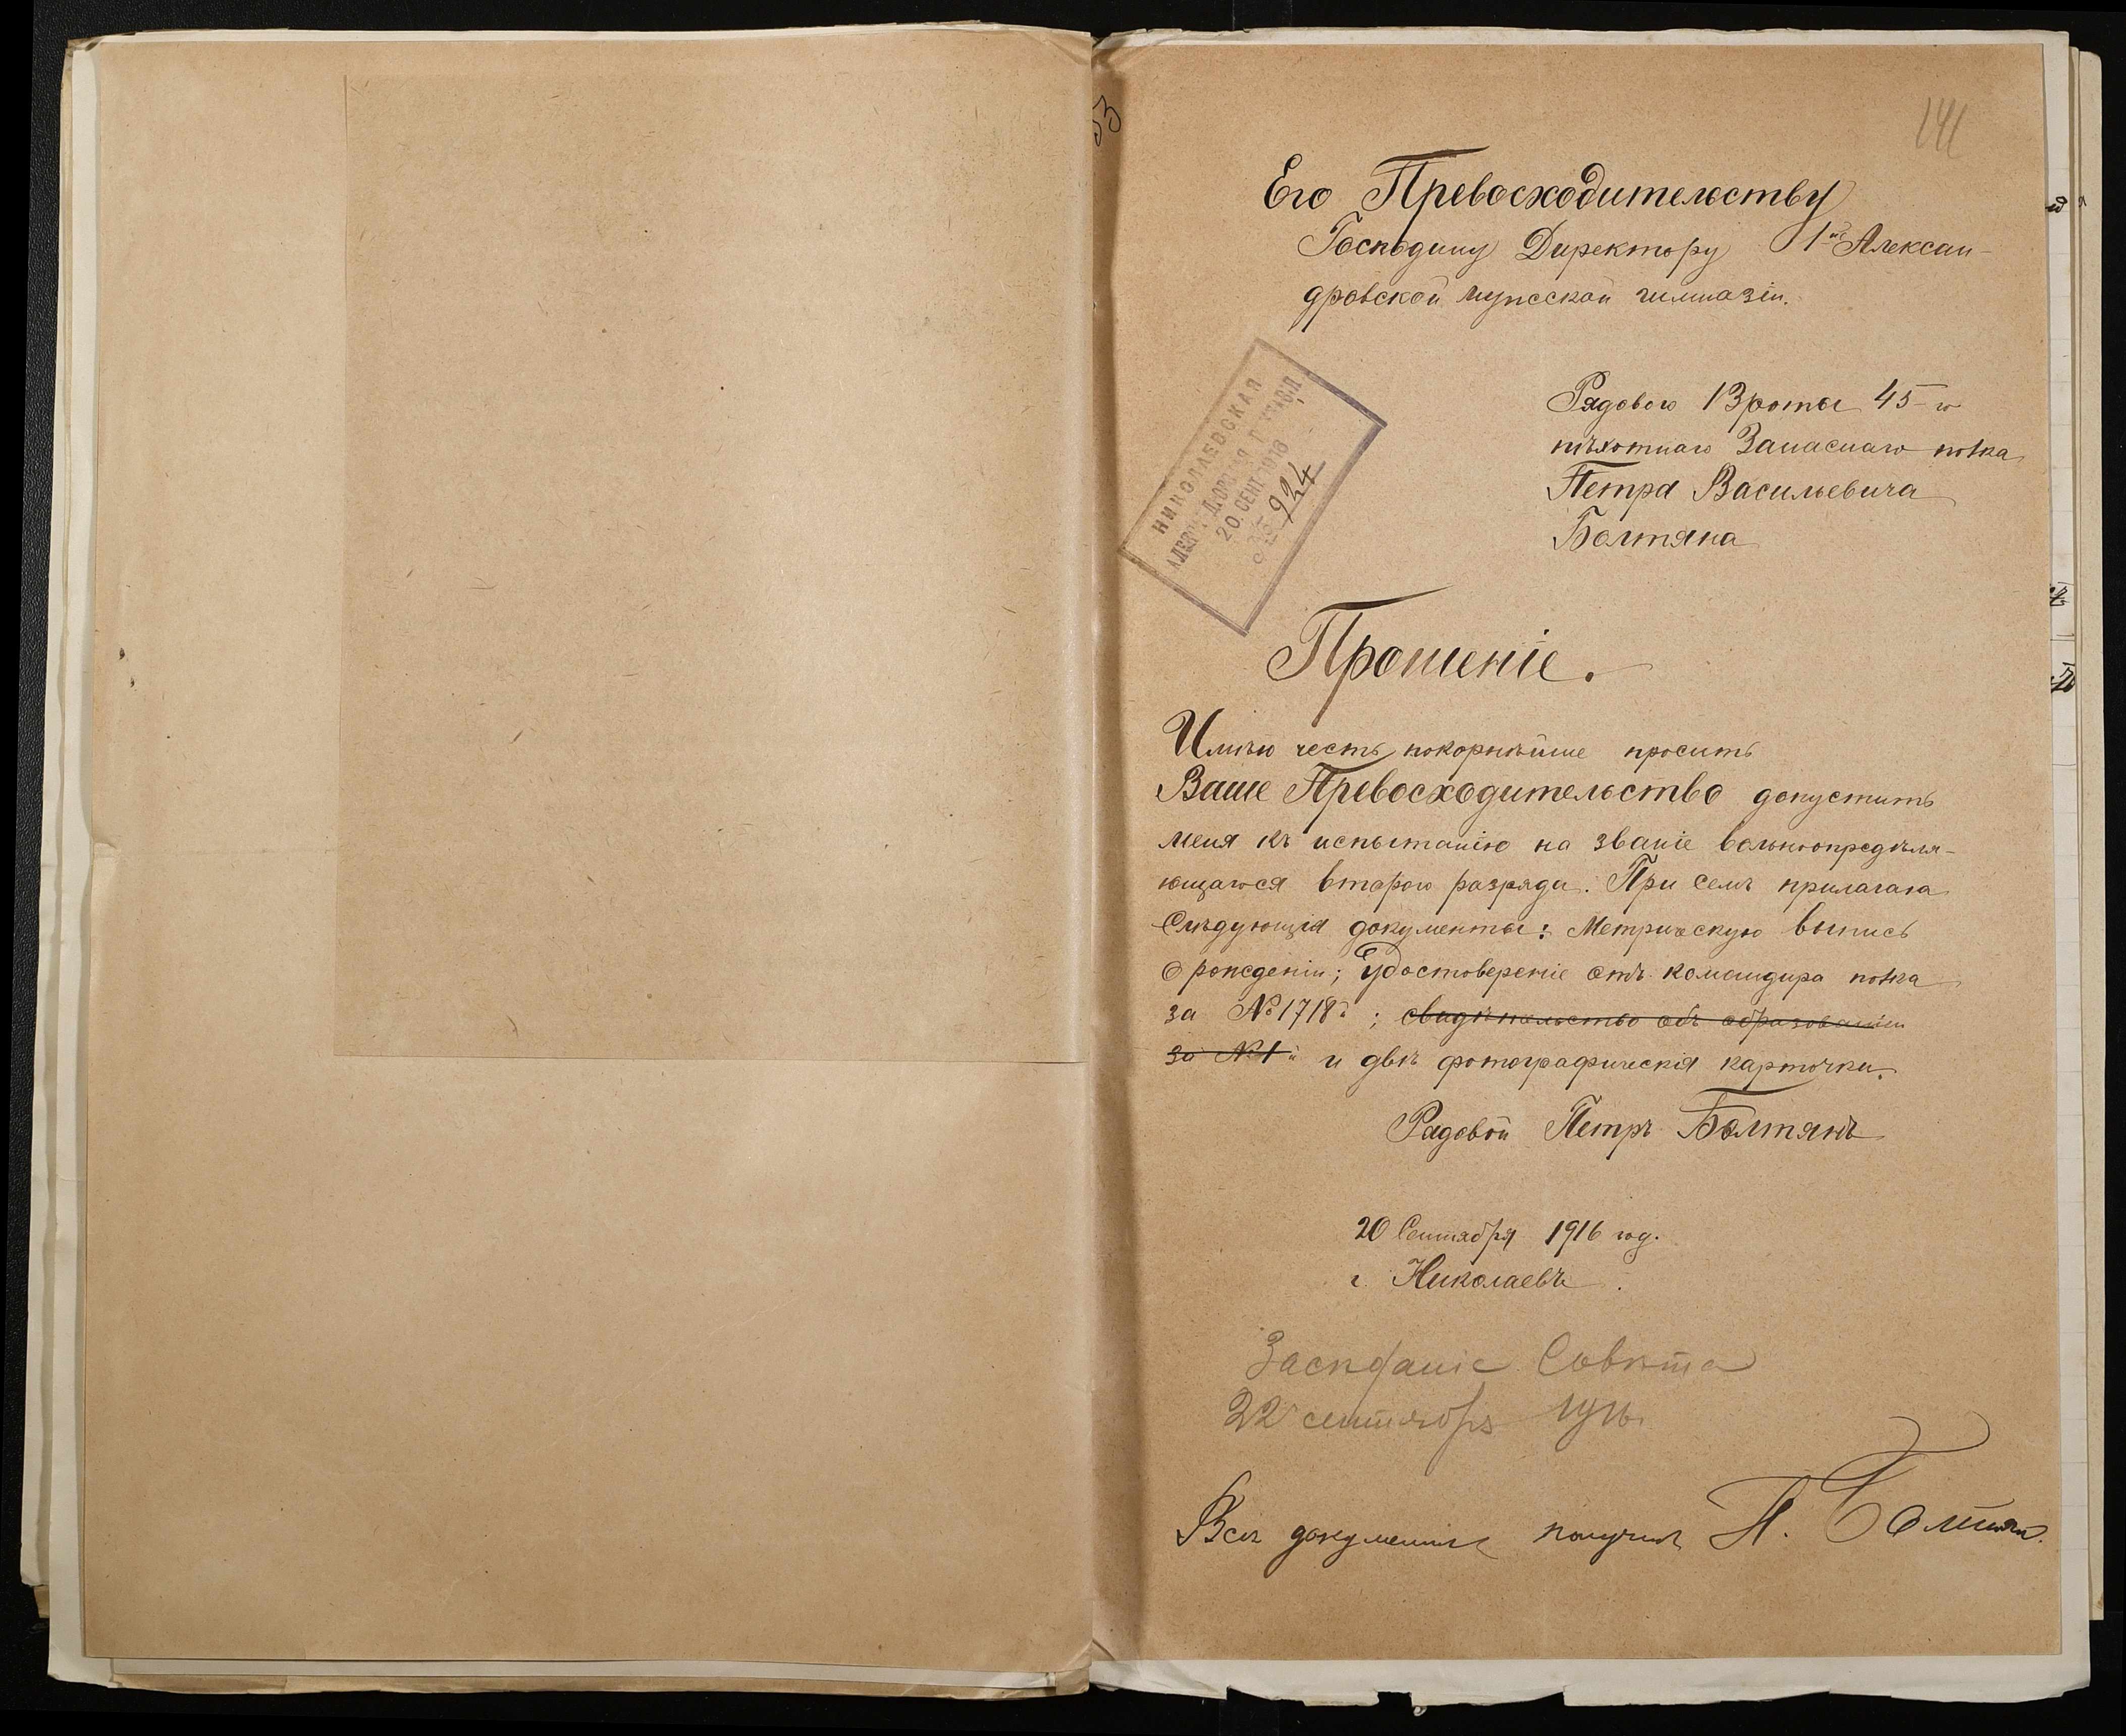 53
141
Его Превосходительству
Господину Директору 1й Алексан-
дровской мужской гимназіи.
Рядового 13 роты 45-го
пѣхотнаго Запаснаго полка
Петра Васильевича
Болтяна
НИКОЛАЕВСКАЯ
20 СЕНТ 1916
№ 924
Прошеніе.
Имѣю честь покорнѣйше просить
Ваше Превосходительство допустить
меня къ испытанію на званіе вольноопредѣля-
ющагося второго разряда. При семъ прилагаю
Слѣдующія документы: Метрическую выпись
о рожденіи; Удостовереніе отъ командира полка
за № 1718й; свидѣтельство объ образованіи
за № 1й и двѣ фотографическія карточки.
Рядовой Петръ Болтянъ
20 Сентября 1916 год.
г. Николаевъ.
Засѣданіе Совѣта
22 сентября 1916.
Всѣ документы получилъ П. Болтян.